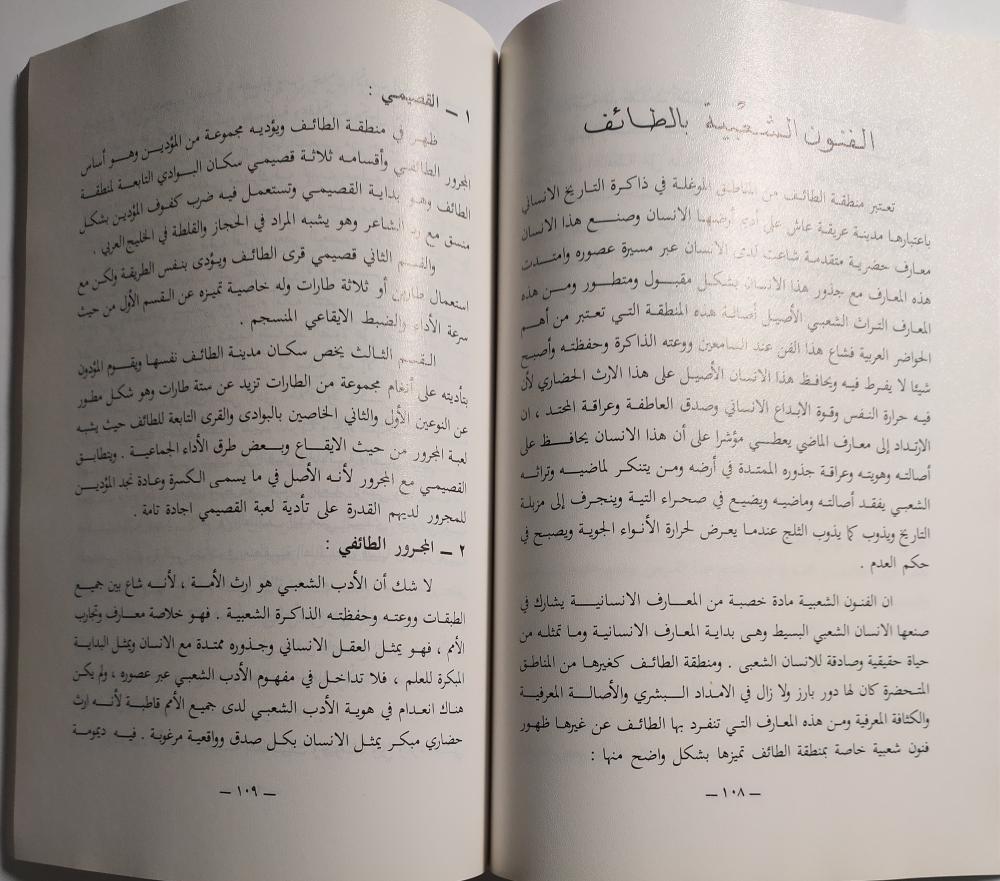 الفنون الشعبية بالطائف
تعتبر منطقة الطائف من المناطق الموغلة في ذاكرة التاريخ الانساني
باعتبارها مدينة عريقة عاش على أديم أرضها الانسان وصنع هذا الانسان
معارف حضرية متقدمة شاعت لدى الانسان عبر مسيرة عصوره وامتدت
هذه المعارف مع جذور هذا الانسان بشكل مقبول ومتطور ومن هذه
المعارف التراث الشعبي الأصيل أصالة هذه المنطقة التي تعتبر من أهم
الحواضر العربية فشاع هذا الفن عند السامعين ووعته الذاكرة وحفظته وأصبح
شيئا لا يفرط فيه ويحافظ هذا الانسان الأصيل على هذا الارث الحضاري لأن
فيه حرارة النفس وقوة الابداع الانساني وصدق العاطفة وعراقة المحتد ، ان
الارتداد إلى معارف الماضي يعطي مؤشرا على أن هذا الانسان يحافظ على
أصالته وهويته وعراقة جذوره الممتدة في أرضه ومن يتنكر لماضيه وتراثه
الشعبي يفقد أصالته وماضيه ويضيع في صحراء التية وينجرف إلى مزبلة
التاريخ ويذوب كما يذوب الثلج عندما يعرض لحرارة الأنواء الجوية ويصبح في
حكم العدم .
ان الفنون الشعبية مادة خصبة من المعارف الانسانية يشارك في
صنعها الانسان الشعبي البسيط وهى بداية المعارف الانسانية وما تمثله من
حياة حقيقية وصادقة للانسان الشعبى . ومنطقة الطائف كغيرها من المناطق
المتحضرة كان لها دور بارز ولا زال في الامداد البشري والأصالة المعرفية
والكثافة المعرفية ومن هذه المعارف التي تنفرد بها الطائف عن غيرها ظهور
فنون شعبية خاصة بمنطقة الطائف تميزها بشكل واضح منها :
— ١٠٨ —
١ — القصيمي :
ظهر في منطقة الطائف ويؤديه مجموعة من المؤدين وهو أساس
المجرور الطائفي وأقسامه ثلاثة قصيمي سكان البوادي التابعة لمنطقة
الطائف وهو بداية القصيمي وتستعمل فيه ضرب كفوف المؤدين بشكل
منسق مع رد الشاعر وهو يشبه المراد في الحجاز والقلطة في الخليج العربي .
والقسم الثاني قصيمي قرى الطائف ويؤدى بنفس الطريقة ولكن مع
استعمال طارين أو ثلاثة طارات وله خاصية تميزه عن القسم الأول من حيث
سرعة الأداء والضبط الايقاعي المنسجم .
القسم الثالث يخص سكان مدينة الطائف نفسها ويقوم المؤدون
بتأديته على أنغام مجموعة من الطارات تزيد عن ستة طارات وهو شكل مطور
عن النوعين الأول والثاني الخاصين بالبوادى والقرى التابعة للطائف حيث يشبه
لعبة المجرور من حيث الايقاع وبعض طرق الأداء الجماعية . ويتطابق
القصيمي مع المجرور لأنه الأصل في ما يسمى الكسرة وعادة نجد المؤدين
للمجرور لديهم القدرة على تأدية لعبة القصيمي اجادة تامة .
٢ — المجرور الطائفي :
لا شك أن الأدب الشعبي هو ارث الأمة ، لأنه شاع بين جميع
الطبقات ووعته وحفظته الذاكرة الشعبية . فهو خلاصة معارف وتجارب
الأمم ، فهو يمثل العقل الانساني وجذوره ممتدة مع الانسان ويمثل البداية
المبكرة للعلم ، فلا تداخل في مفهوم الأدب الشعبي عبر عصوره ، ولم يكن
هناك انعدام في هوية الأدب الشعبي لدى جميع الأمم قاطبة لأنه ارث
حضاري مبكر يمثل الانسان بكل صدق وواقعية مرغوبة . فيه ديمومة
— ١٠٩ —